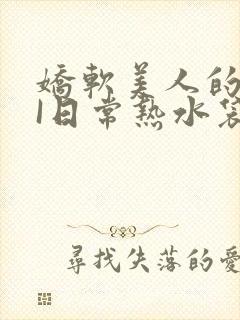 嬌軟美人的
1日常熱水袋
尋找失落的愛